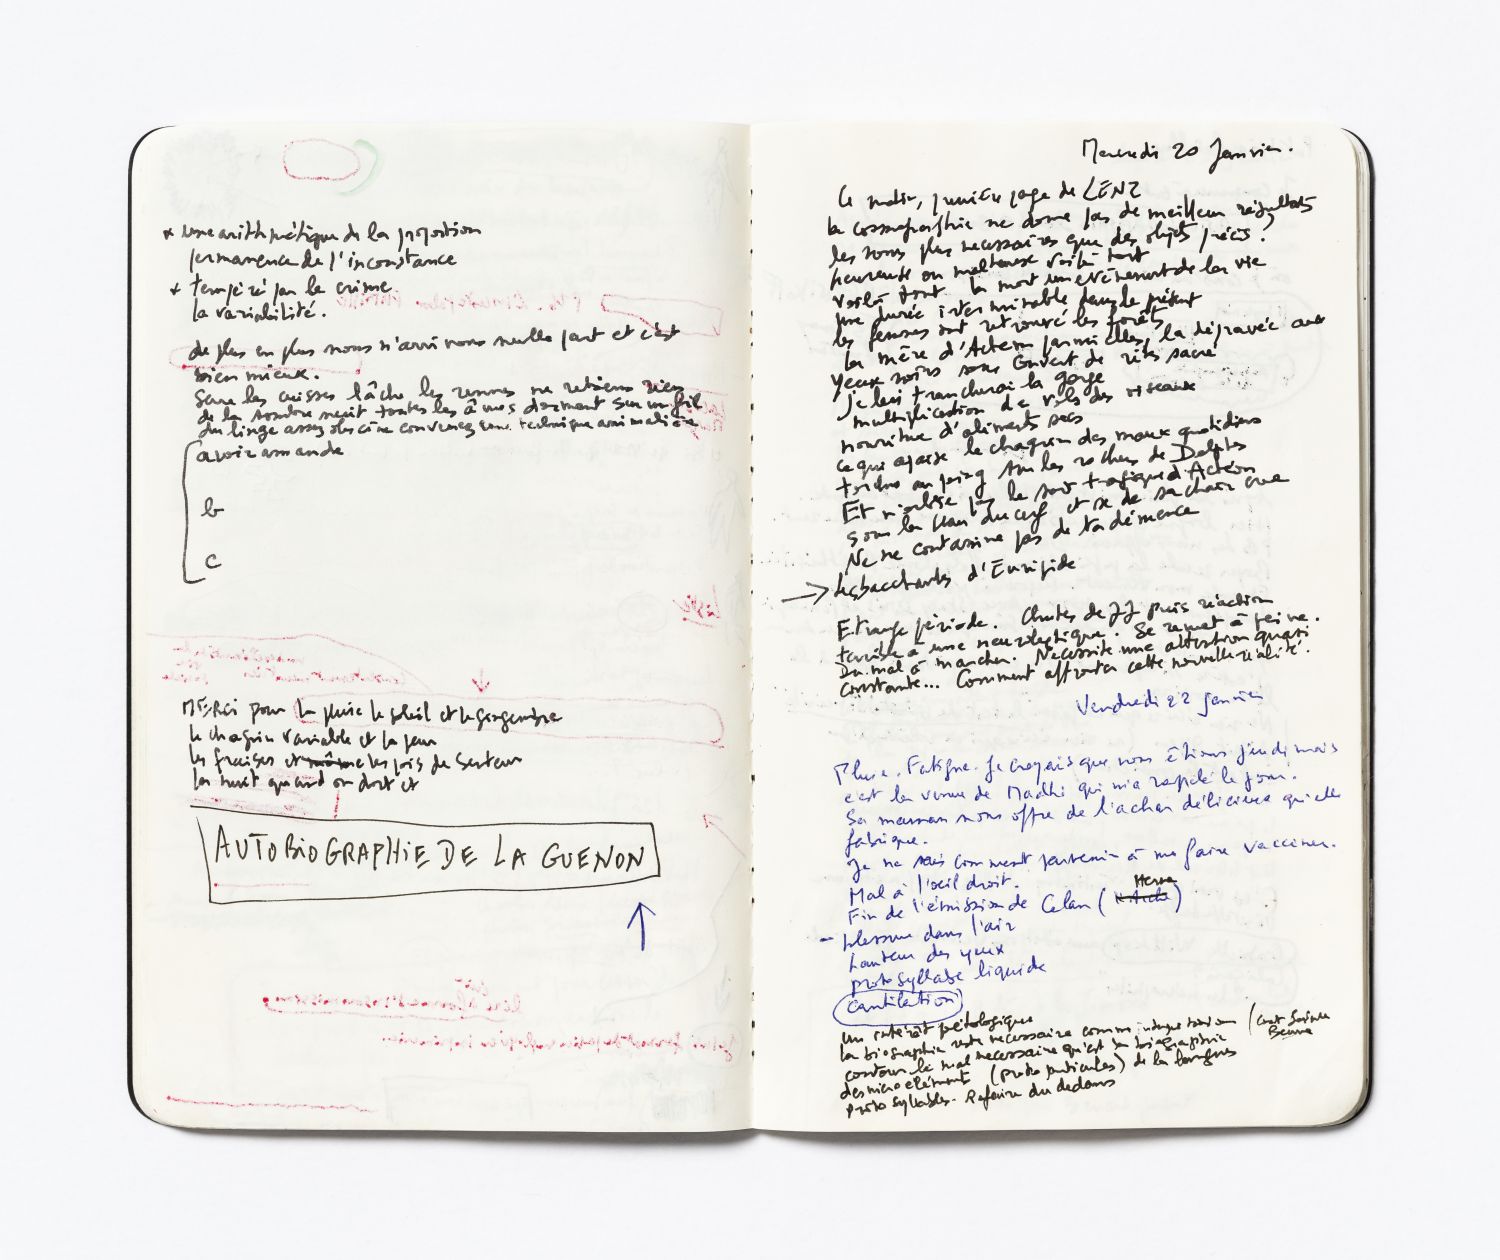 * une arithmétique de la proportion
permanence de l'inconstance
* tempéré par le crime
la variabilité.
de plus en plus nous n'arrivons nulle part et c'est
bien mieux.
les cuisses lâche les rennes ne retiens rien
de la sombre nuit toutes les âmes dorment sur un fil
du linge assez obscène convenez une technique
avoir amande
b
c
MERCi pour la pluie le soleil et le gingembre
le chagrin variable et la peur
les fraises et les pois de senteur
la nuit quand on dort et
AUTOBiOGRAPHiE DE LA GUENON
Mercredi 20 Janvier.
Ce matin, première page de LENZ
la cosmographie ne donne pas de meilleur résultats
les sons plus necessaires que des objets précis.
heureuse ou malheureuse voilà tout
voilà tout la mort un evénement de la vie
une durée interminable dans le présent
les femmes ont retrouvé les forêts
la mère d'Acteon parmi elles, la dépravée aux
yeux noirs sous couvert de rites sacré
je leur trancherai la gorge
multiplication de vols des oiseaux
nourritue d'aliments secs
ce qui apaise le chagrin des maux quotidiens
torchis au poing sur les rochers de Delphes
Et n'oublie pas le sort tragique d'Actéon
sous la peau du cerf et se de sa chair crue
Ne me contamine pas de ta démence
→ les bacchantes d'Euripide
Etrange période. Chutes de JJ puis réaction
terrible à une neuroleptique. Se remet à peine.
Du mal à marcher. Necessite une attention quasi
constante... Comment affronter cette nouvelle réalité.
Vendredi 22 janvier
Pluie. Fatigue. Je croyais que nous étions jeudi mais
c'est la venue de Madhi qui m'a rappelé le jour.
Sa maman nous offre de l'achar délicieux qu'elle
fabrique.
Je ne sais comment parvenir à me faire vacciner.
Mal à l'oeil droit.
Fin de l'émission de Celan (
- blessure dans l'air
hauteur des yeux
protosyllabe liquide
cantilation
un intérêt pétologique
la biographie reste necessaire comme (cont Sainte
Beuve
contour le mal necessaire qu'est la biographie
des micro elément (proto particules) de la langues
proto syllabes. Refaire du dedans